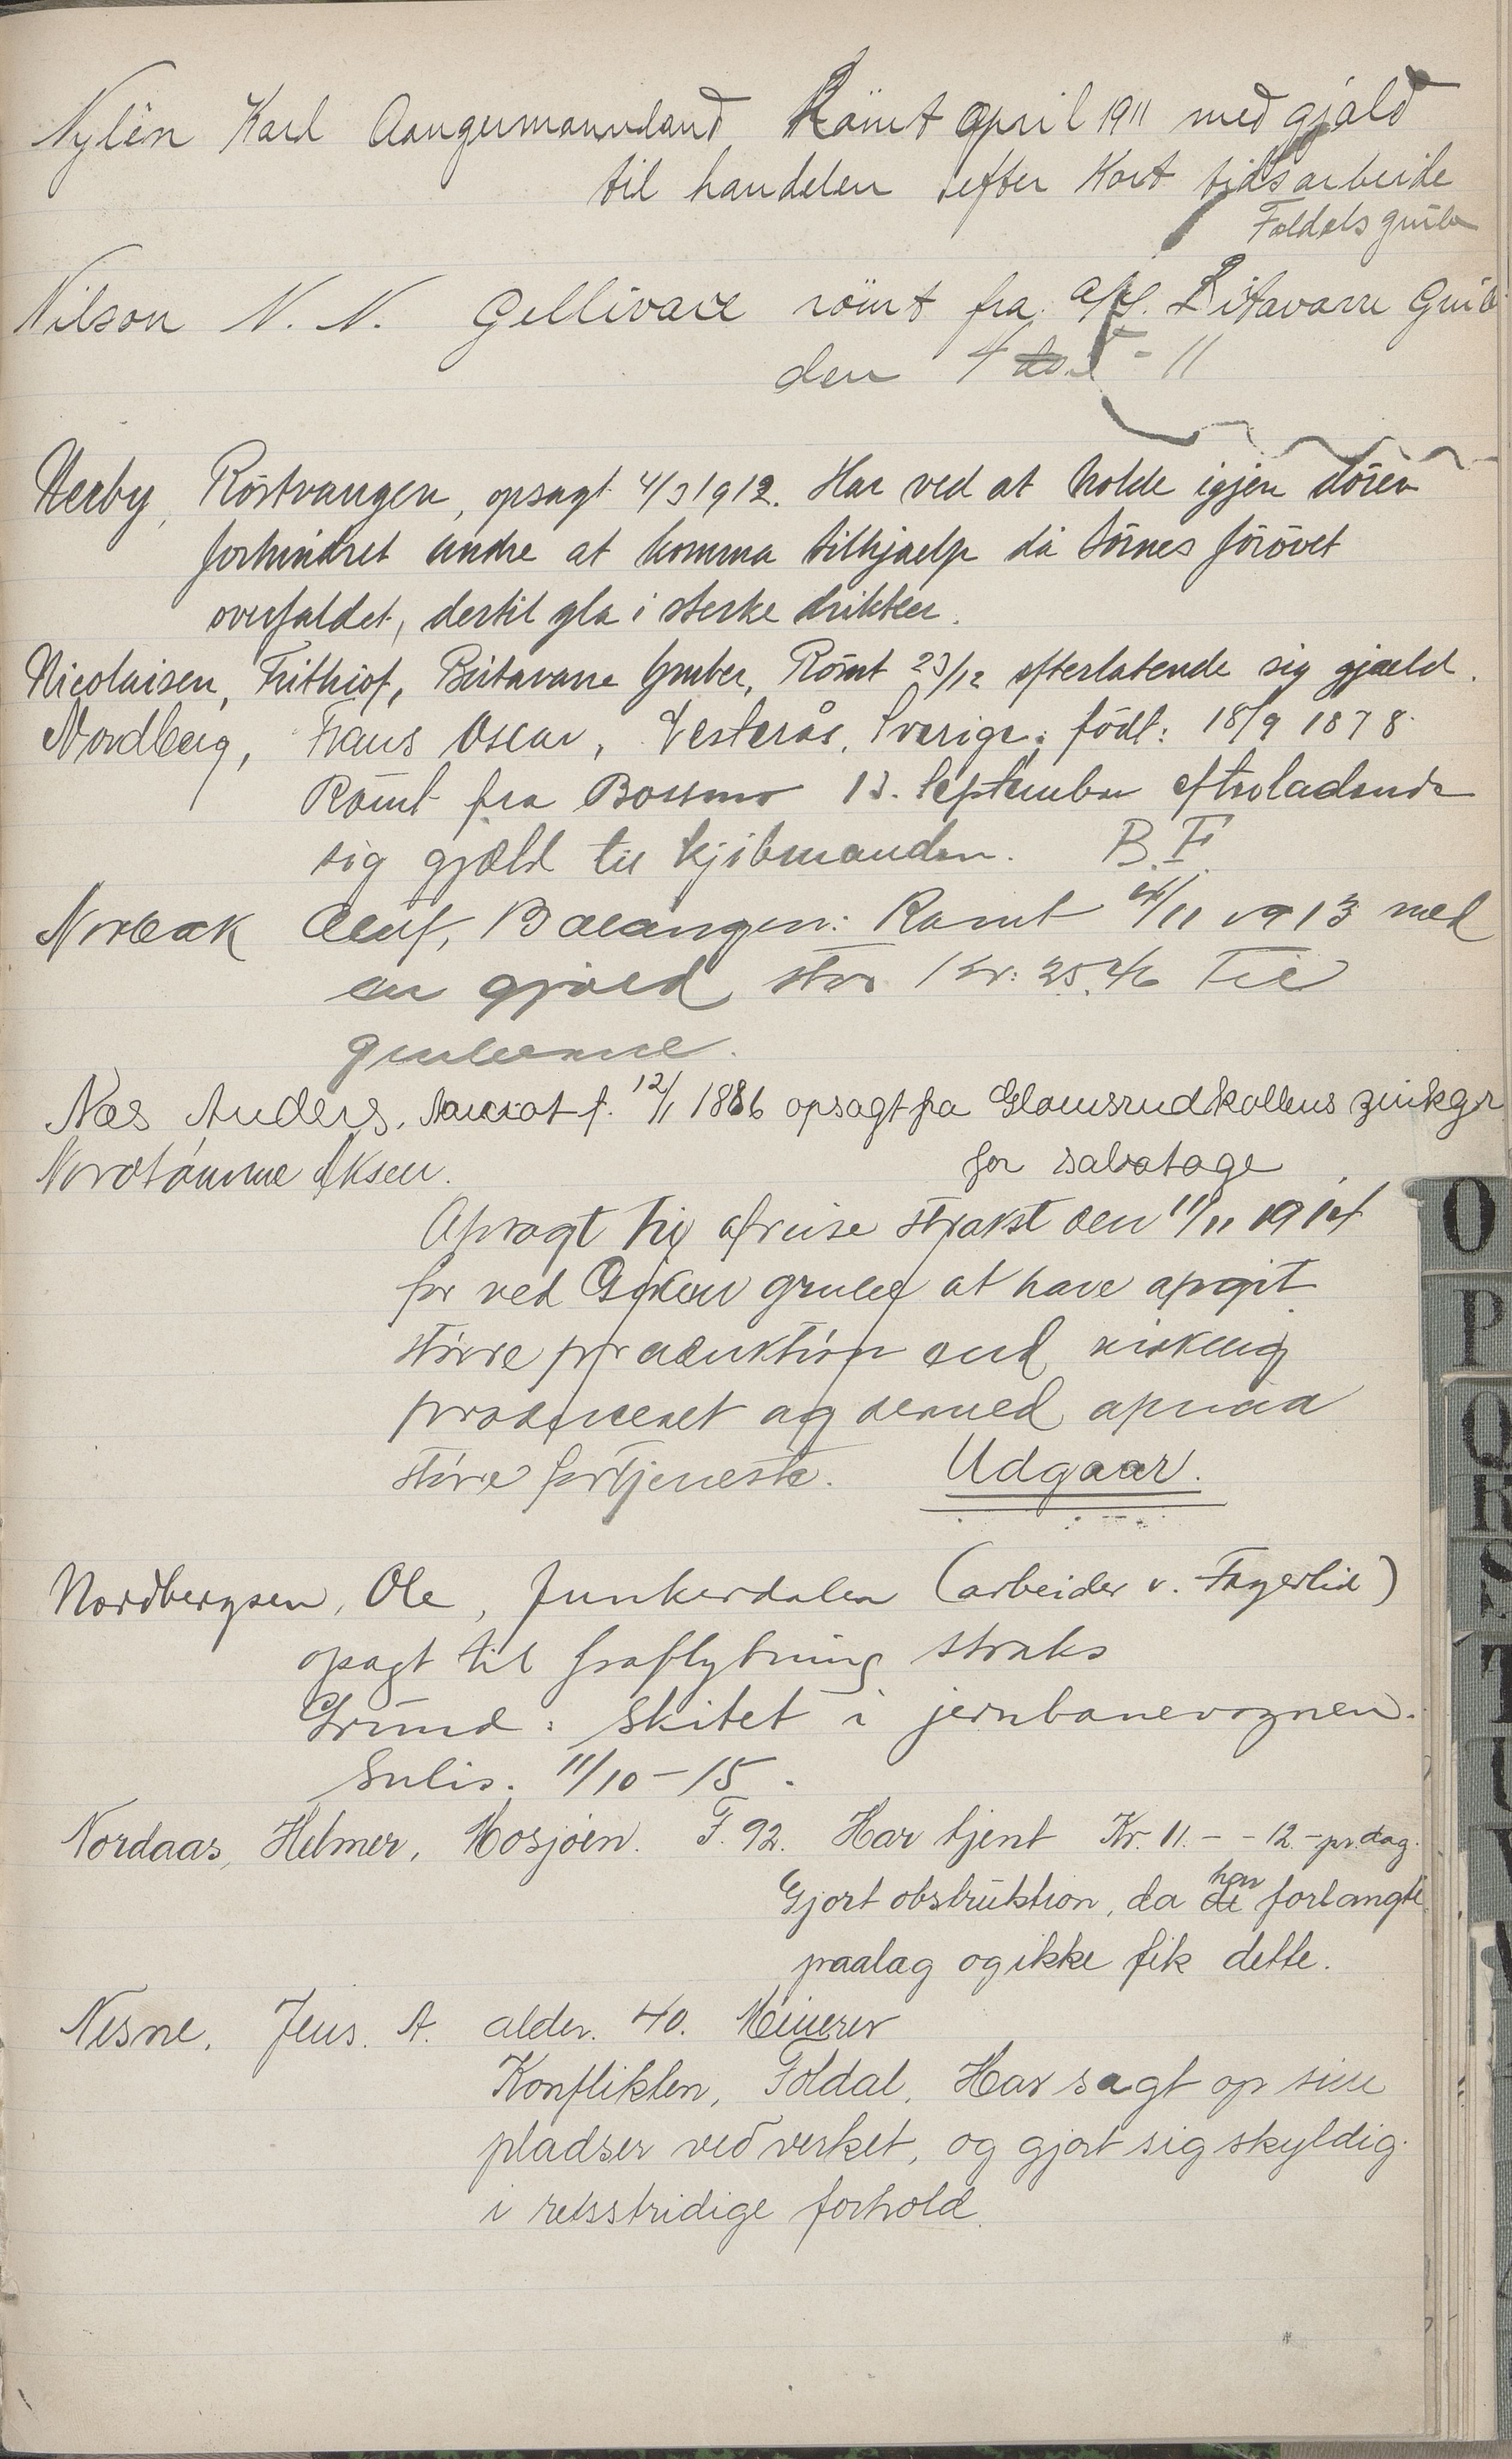 Nylén Karl Aangermannland Römt april 1911 med gjald
til handelen efter Kort tidsarbeide
Foldals grube
Nilson N. N. Gellivare römt fra a/s. Bitavarre Grub
den 4 5 - 11
Nerby, Röstvangen, opsagt 4/3 1912. Har ved at holde igjen dören
forhindret andre at komma tilhjaelp da törnes förövet
overfaldet, dertil gla i sterke drikker.
Nicolaisen, Frithiof, Birtavarre Gruber, Römt 23/12 efterlatende sig gjæld.
Nordberg, Frans Oscar, Vesterås, Sverige; födt: 18/9 1878
Römt fra Bossmo 13. September efterladende
sig gjæld til kjöbmanden. B. F.
Norbak Oluf, Balangen: Rømt /11 1913 med
en gjæld stor Kr: 25.46 til
gruberne.
Næs Anders, f. 12/1 1886 opsagt fra Glomsrudkollens zinkgr
for sabotage
Nordtömme
Opsagt til afreise strakst den 11/11 1914
for ved grube at have opgit
större produktion end virkelig
produceret og dermed opnaa
störe fortjeneste. Udgaar.
Nordbergsen, Ole, Junkerdalen (arbeider v. Fagerlid)
opsagt til fraflytning straks
Grund: Skitet i jernbanevognen.
Sulis. 11/10 - 15.
Nordaas, Helmer, Mosjöen. F. 92. Har tjent Kr. 11.- - 12 - pr. dag.
Gjort obstruktion, da de han forlangte
paalag og ikke fik dette.
Nesne, Jens. A. alder. 40. Minerer
Konflikten, Foldal. Har sagt op sine
pladser ved verket, og gjort sig skyldig
i retsstridige forhold.
O
P
Q
R
S
T
U
V